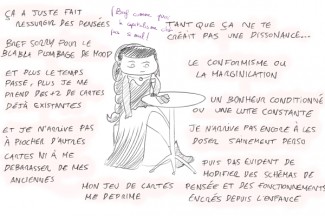 ÇA A JUSTE FAIT
RESSURGIR DES PENSÉES
BREF SORRY POUR LE
BLABLA PLOMBAGE DE MOOD
ET PLUS LE TEMPS
PASSE, PLUS JE ME
PREND DES +2 DE CARTES
DÉJÀ EXISTANTES
ET JE N'ARRIVE PAS
À PIOCHER D'AUTRES
CARTES NI À ME
DEBARASSER DE MES
ANCIENNES
MON JEU DE CARTES
ME DEPRIME
(Bref comme quoi
le capitalisme c'est
pas cool!)
TANT QUE ÇA NE TE
CRÉAIT PAS UNE DISSONANCE...
LE CONFORMISME OU
LA MARGINALISATION
UN BONHEUR CONDITIONNÉ
OU UNE LUTTE CONSTANTE
JE N'ARRIVE PAS ENCORE À LES
DOSER SAINEMENT PERSO
PUIS PAS ÉVIDENT DE
MODIFIER DES SCHÉMAS DE
PENSÉE ET DES FONCTIONNEMENTS
ENCRÉS DEPUIS L'ENFANCE